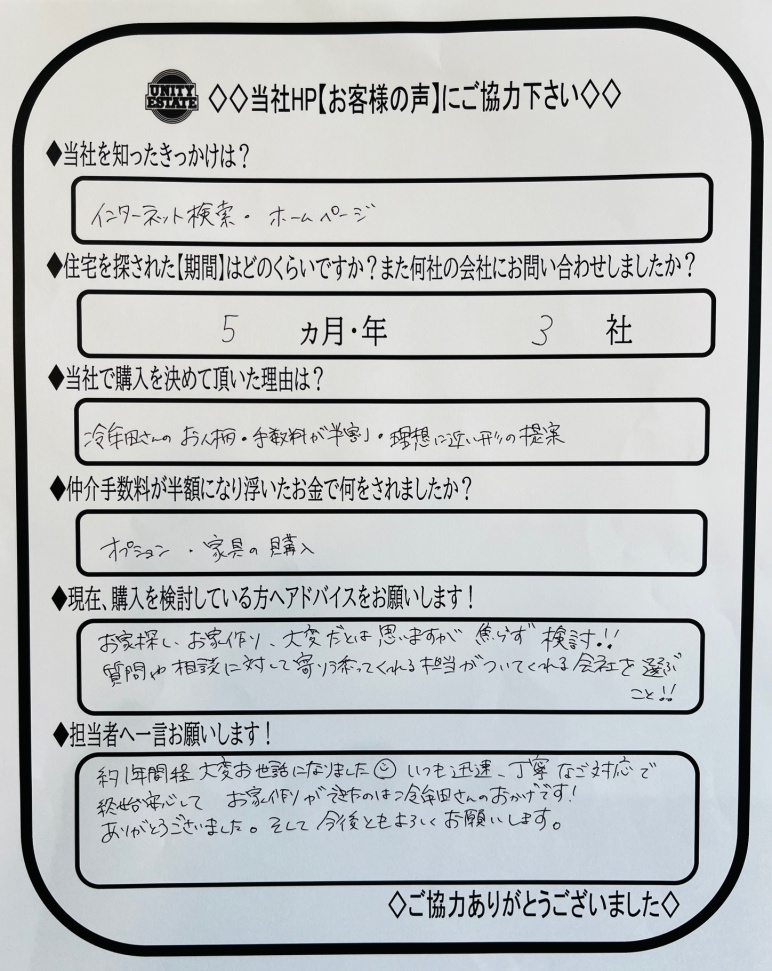 UNITY
ESTATE
◇◇当社HP【お客様の声】にご協力下さい◇◇
◆当社を知ったきっかけは？
インターネット検索・ホームページ
◆住宅を探された【期間】はどのくらいですか？また何社の会社にお問い合わせしましたか？
5 ヵ月・年 3 社
◆当社で購入を決めて頂いた理由は？
冷牟田さんのお人柄・手数料が半割・理想に近い形の提案
◆仲介手数料が半額になり浮いたお金で何をされましたか？
オプション・家具の購入
◆現在、購入を検討している方へアドバイスをお願いします！
お家探し、お家作り、大変だとは思いますが焦らず検討!!
質問や相談に対して寄り添ってくれる担当がついてくれる会社を選ぶ
こと!!
◆担当者へ一言お願いします！
約1年間程大変お世話になりました☺いつも迅速、丁寧なご対応で
終始安心して お家作りができたのは冷牟田さんのおかげです！
ありがとうございました。そして今後ともよろしくお願いします。
◇ご協力ありがとうございました◇